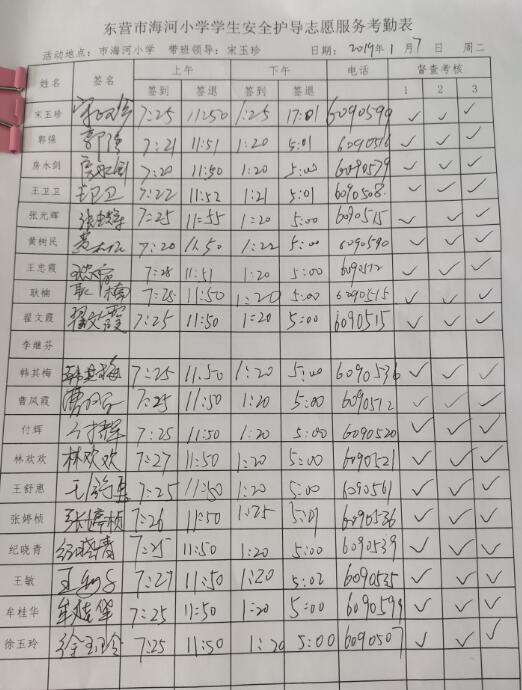 东营市海河小学学生安全护导志愿服务考勤表
活动地点：市海河小学 带班领导：宋玉珍 日期：2019年1月7日 周二
姓名 签名 上午 下午 电话 督查考核
签到 签退 签到 签退 1 2 3
宋玉珍 7:25 11:50 1:25 17:01 6090599 ✓ ✓ ✓
郭强 郭强 7:21 11:51 1:20 5:01 6090516 ✓ ✓ ✓
房水剑 房水剑 7:20 11:50 1:20 5:00 6090579 ✓ ✓ ✓
王卫卫 王卫卫 7:22 11:52 1:21 5:01 6090508 ✓ ✓ ✓
张光辉 张光辉 7:25 11:55 1:20 5:00 6090515 ✓ ✓ ✓
黄树民 7:20 11:50 1:22 5:00 6090590 ✓ ✓ ✓
王忠霞 7:28 11:51 1:20 5:00 6090512 ✓ ✓ ✓
耿楠 耿楠 7:28 11:50 1:20 5:00 6090515 ✓ ✓ ✓
翟文霞 翟文霞 7:25 11:50 1:20 5:00 6090515 ✓ ✓ ✓
李继芬
韩其梅 韩其梅 7:25 11:50 1:20 5:00 6090536 ✓ ✓ ✓
曹凤霞 7:25 11:50 1:20 5:00 6090512 ✓ ✓ ✓
付辉 付辉 7:25 11:50 1:20 5:00 6090520 ✓ ✓ ✓
林欢欢 林欢欢 7:27 11:50 1:20 5:00 6090521 ✓ ✓ ✓
王舒惠 7:25 11:50 1:20 5:00 6090561 ✓ ✓ ✓
张婷桢 张婷桢 7:26 11:50 1:25 5:01 6090536 ✓ ✓ ✓
纪晓青 纪晓青 7:25 11:50 1:20 5:00 6090539 ✓ ✓ ✓
王敏 王敏 7:27 11:50 1:20 5:02 6090535 ✓ ✓ ✓
牟桂华 牟桂华 7:25 11:50 1:20 5:00 6090599 ✓ ✓ ✓
徐玉玲 徐玉玲 7:25 11:50 1:20 5:00 6090507 ✓ ✓ ✓